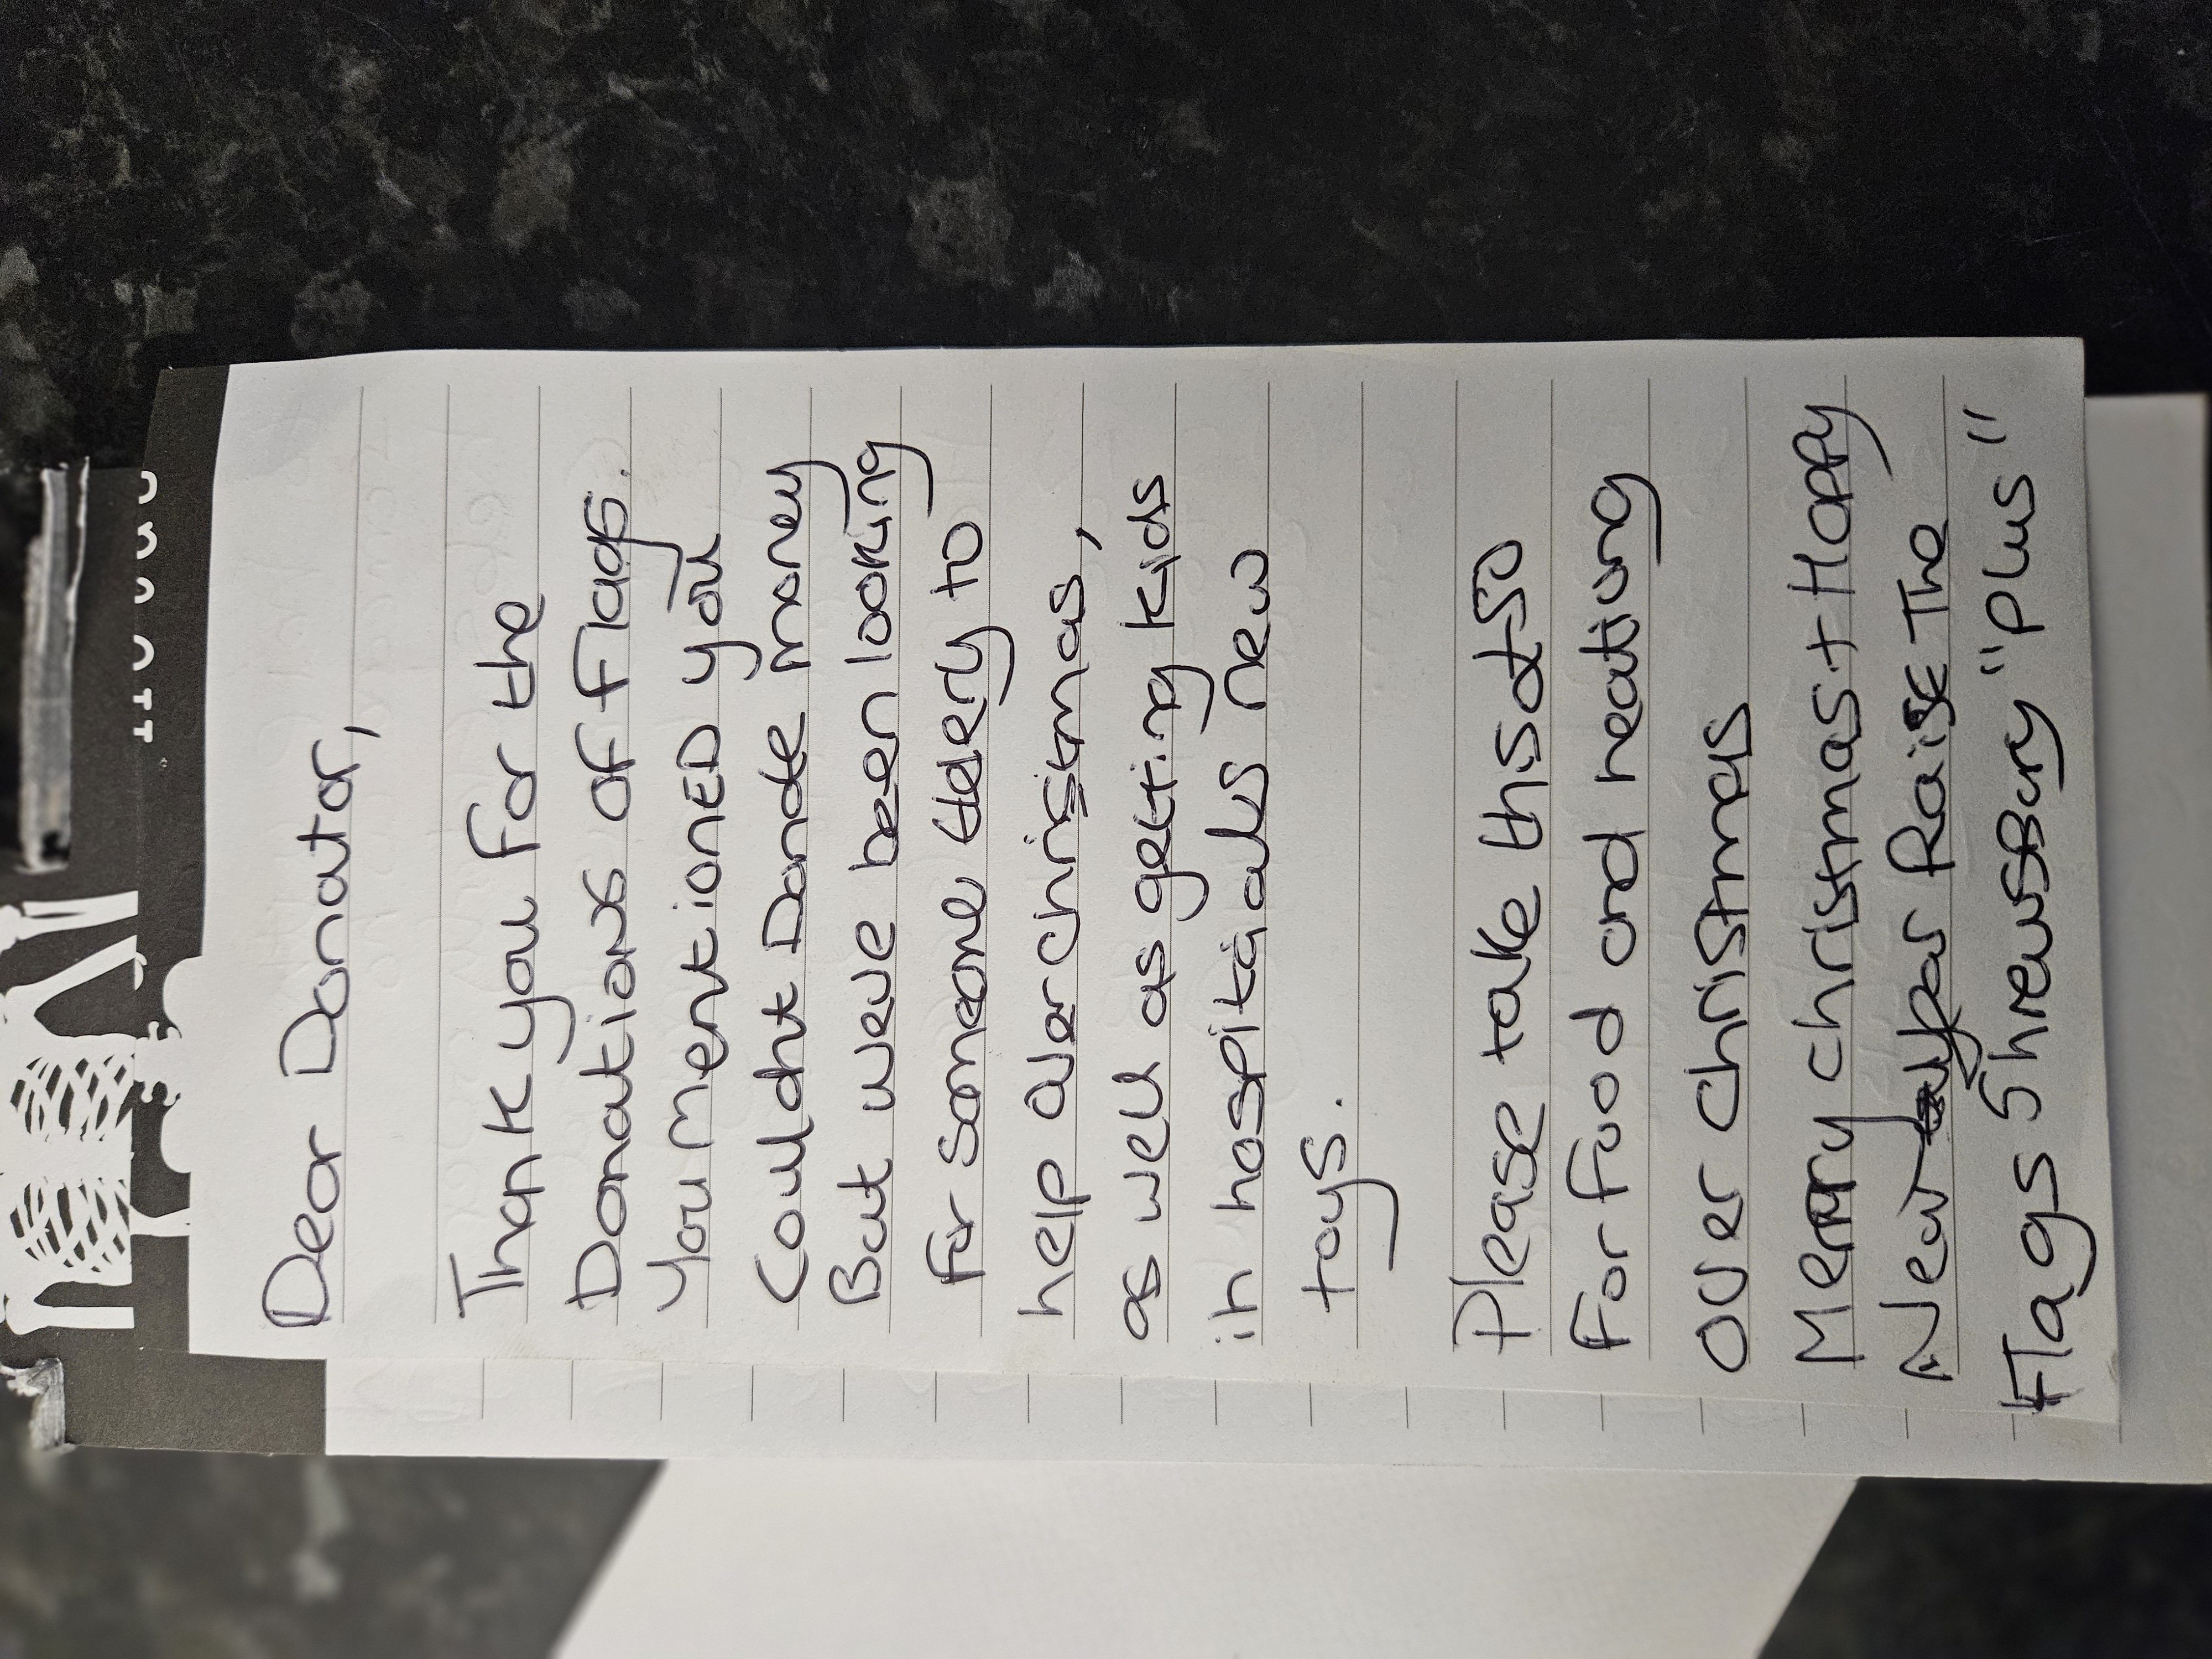 Dear Donator,
Thank you for the
Donations of Flags.
You mentioned you
Couldnt Donate money
But weve been looking
for someone elderly to
help over christmas,
as well as getting kids
in hospitials new
toys.
Please take this £50
For food and heating
over christmas
Merry christmas + Happy
New year Raise The
Flags Shrewsbury "plus"